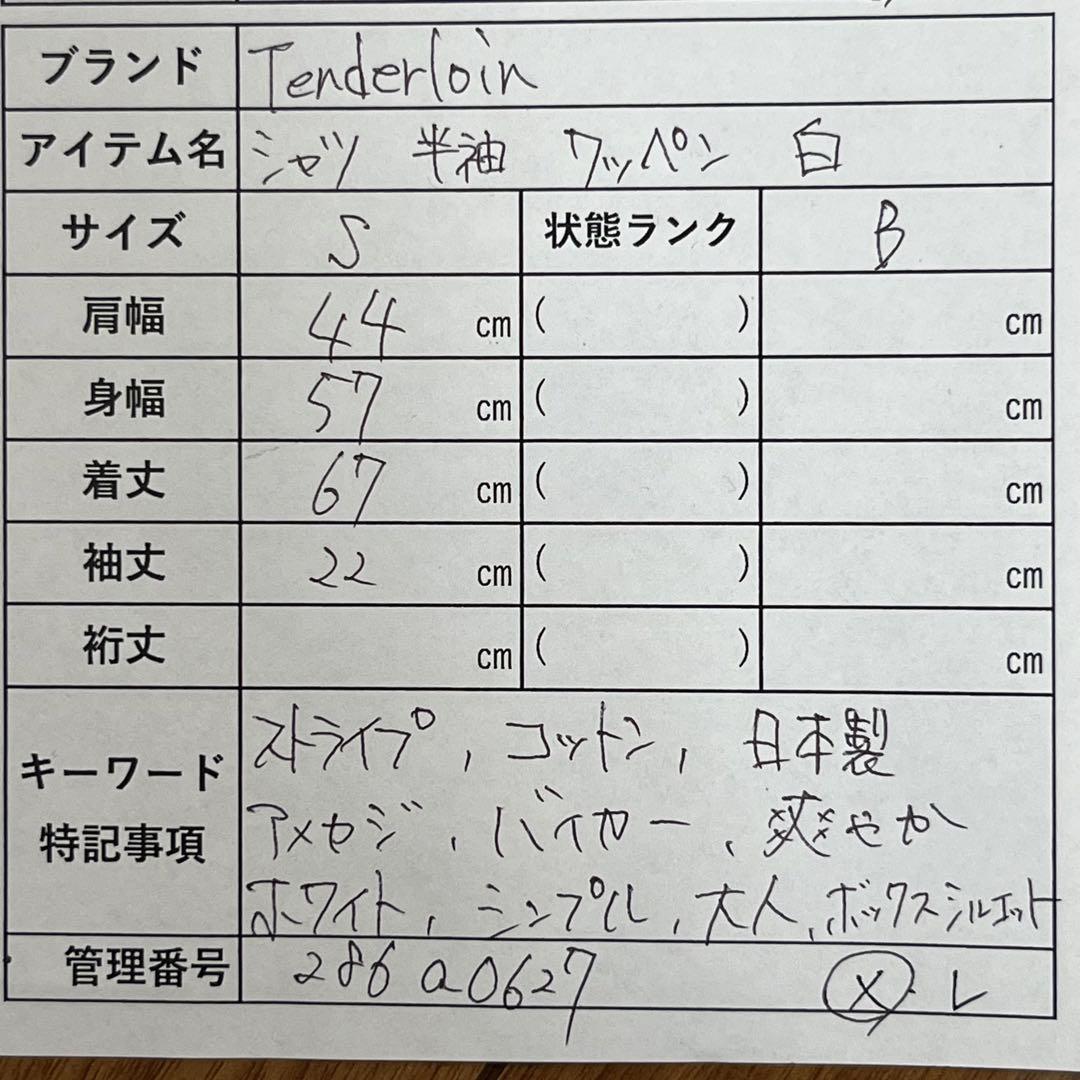 ブランド Tenderloin
アイテム名 シャツ 半袖 ワッペン 白
サイズ S 状態ランク B
肩幅 44 cm ( ) cm
身幅 57 cm ( ) cm
着丈 67 cm ( ) cm
袖丈 22 cm ( ) cm
裄丈 cm ( ) cm
キーワード
特記事項
ストライプ, コットン, 日本製
アメカジ, バイカー, 爽やか
ホワイト, シンプル, 大人, ボックスシルエット
管理番号 286 a0627 メ・レ